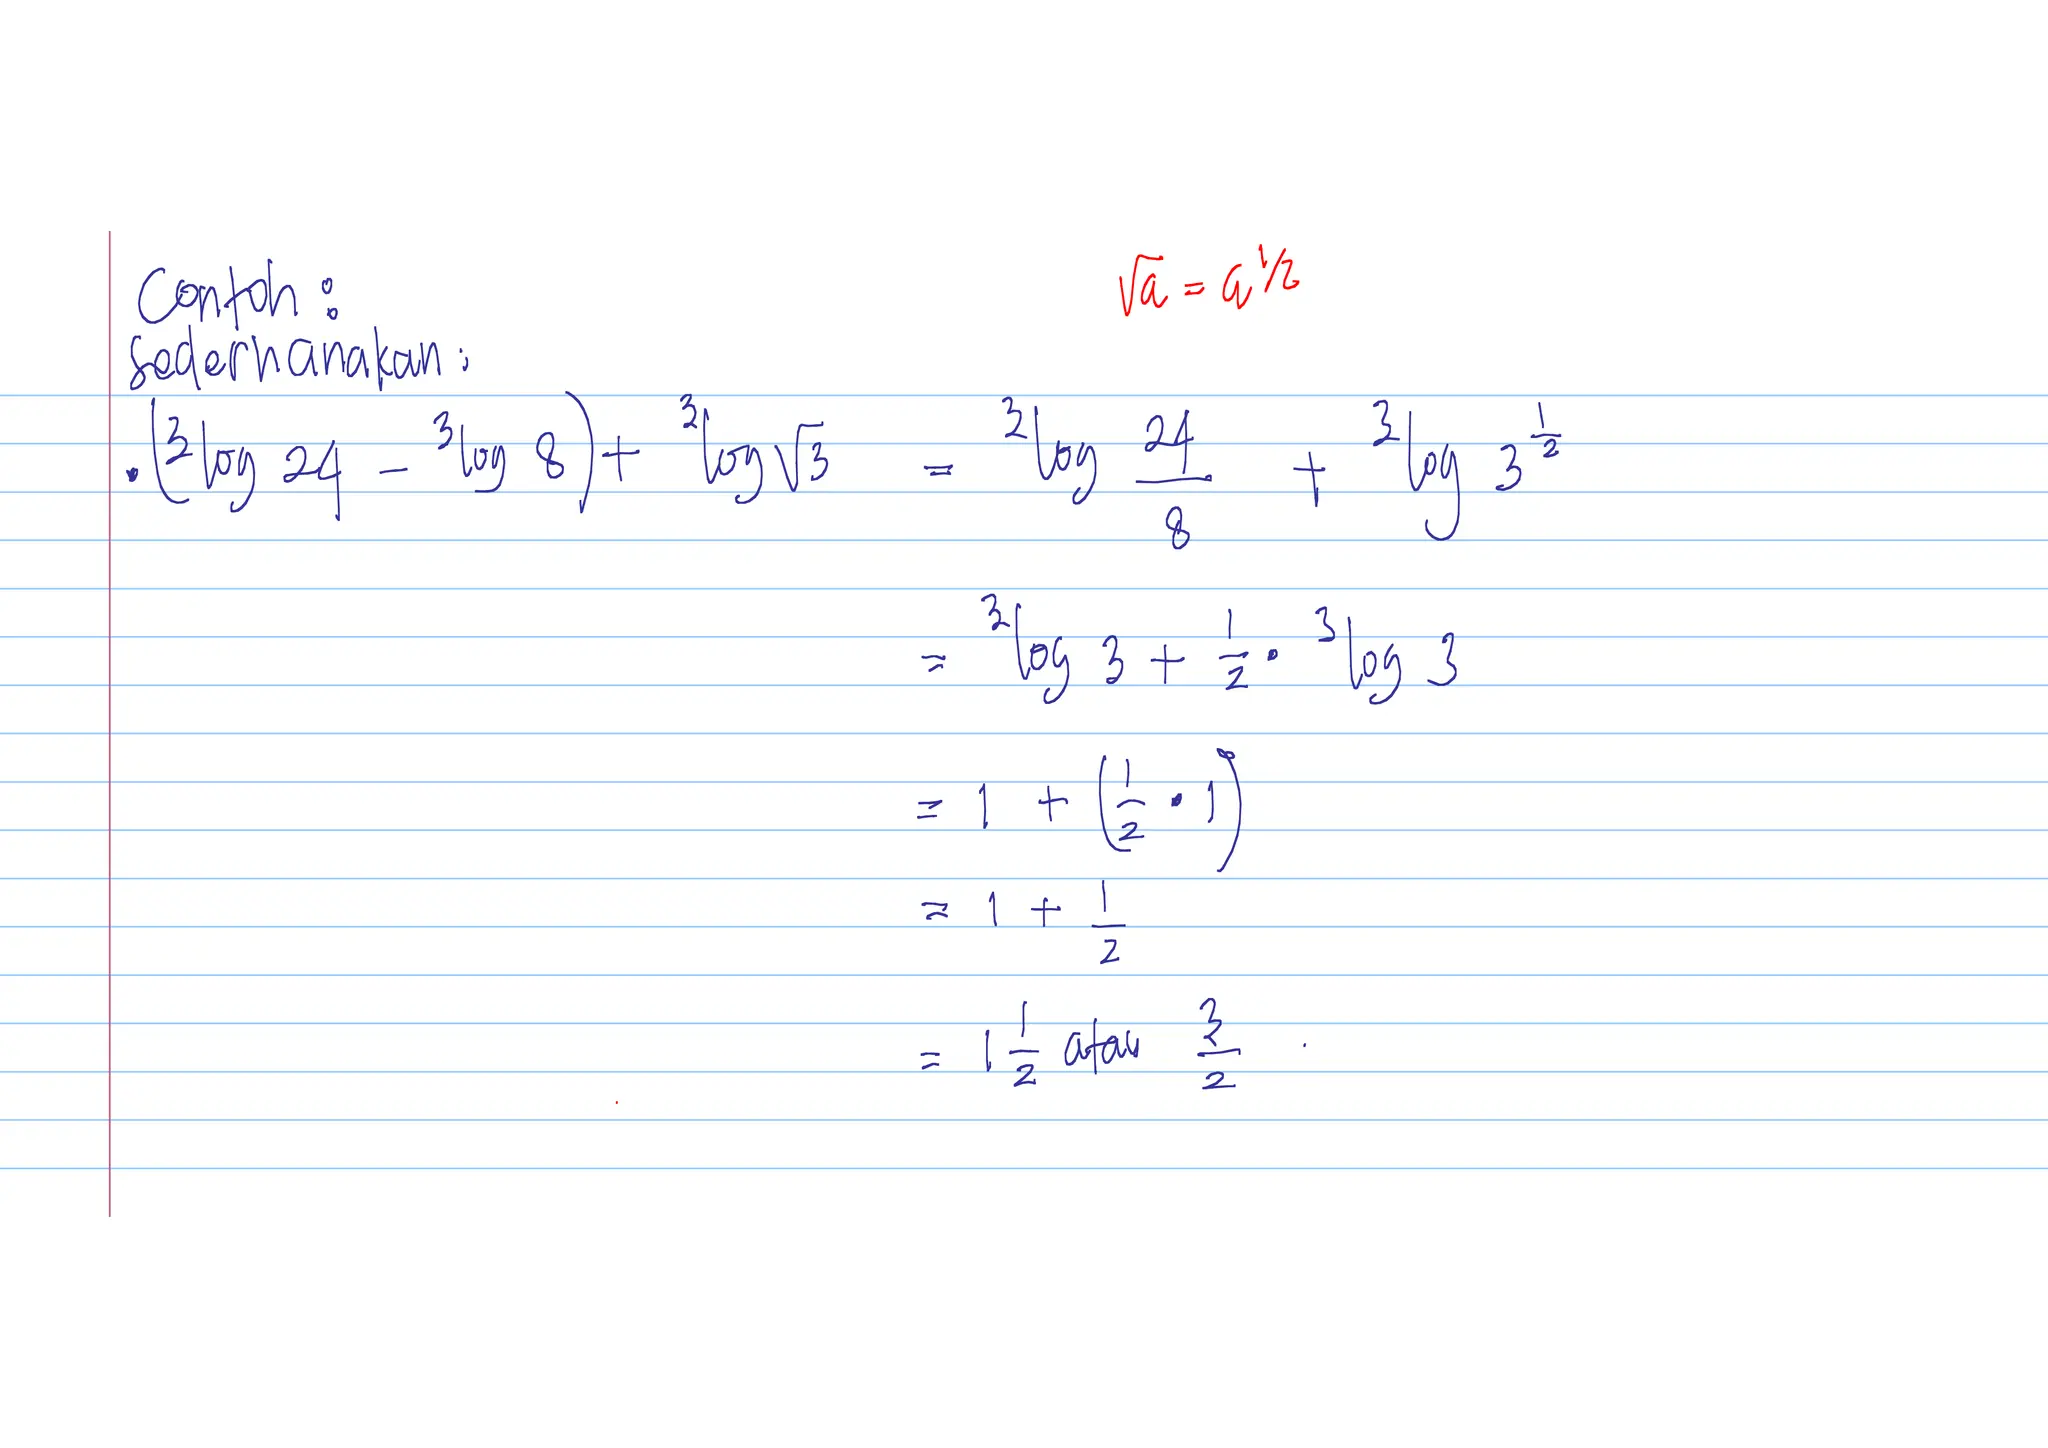 Contoh :
√a = a^1/2
Sederhanakan :
• (³log 24 - ³log 8) + ³log √3 = ³log 24/8 + ³log 3^1/2
= ³log 3 + 1/2 • ³log 3
= 1 + (1/2 • 1)
= 1 + 1/2
= 1 1/2 atau 3/2 .